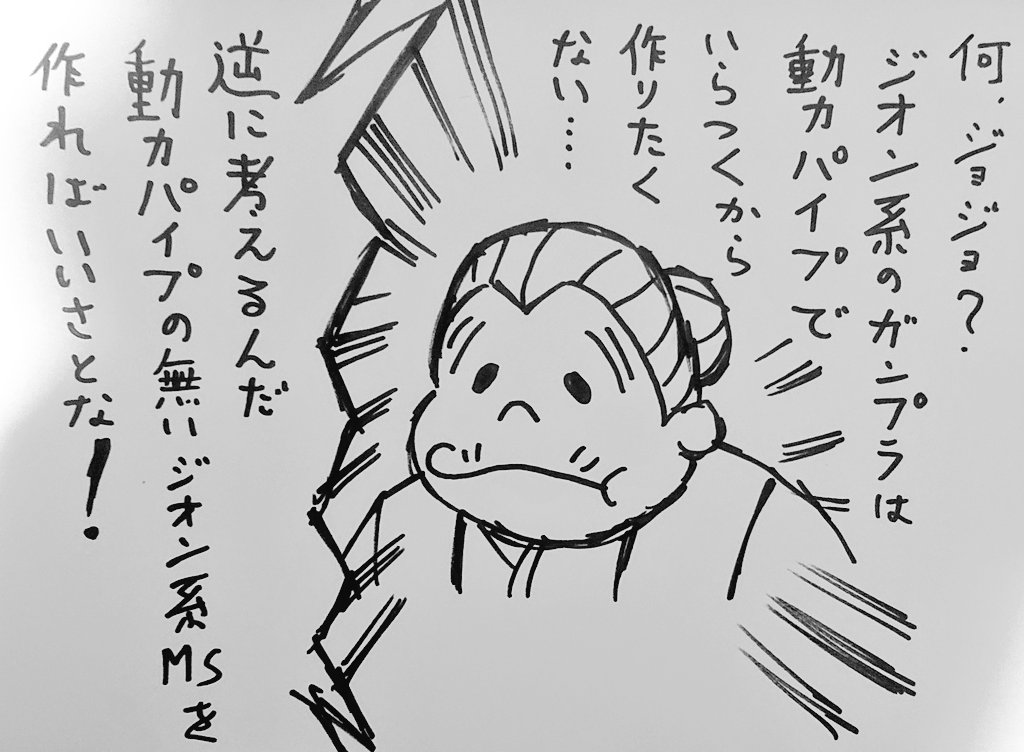 何、ジョジョ?
ジオン系のガンプラは
動力パイプで
いらつくから
作りたく
ない……
逆に考えるんだ
動力パイプの無いジオン系MSを
作ればいいさとな!